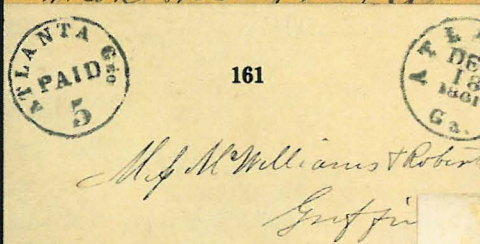 ATLANTA Geo
PAID
5
161
DE
18
1861
Ga.
McWilliams & Robert
Griffin